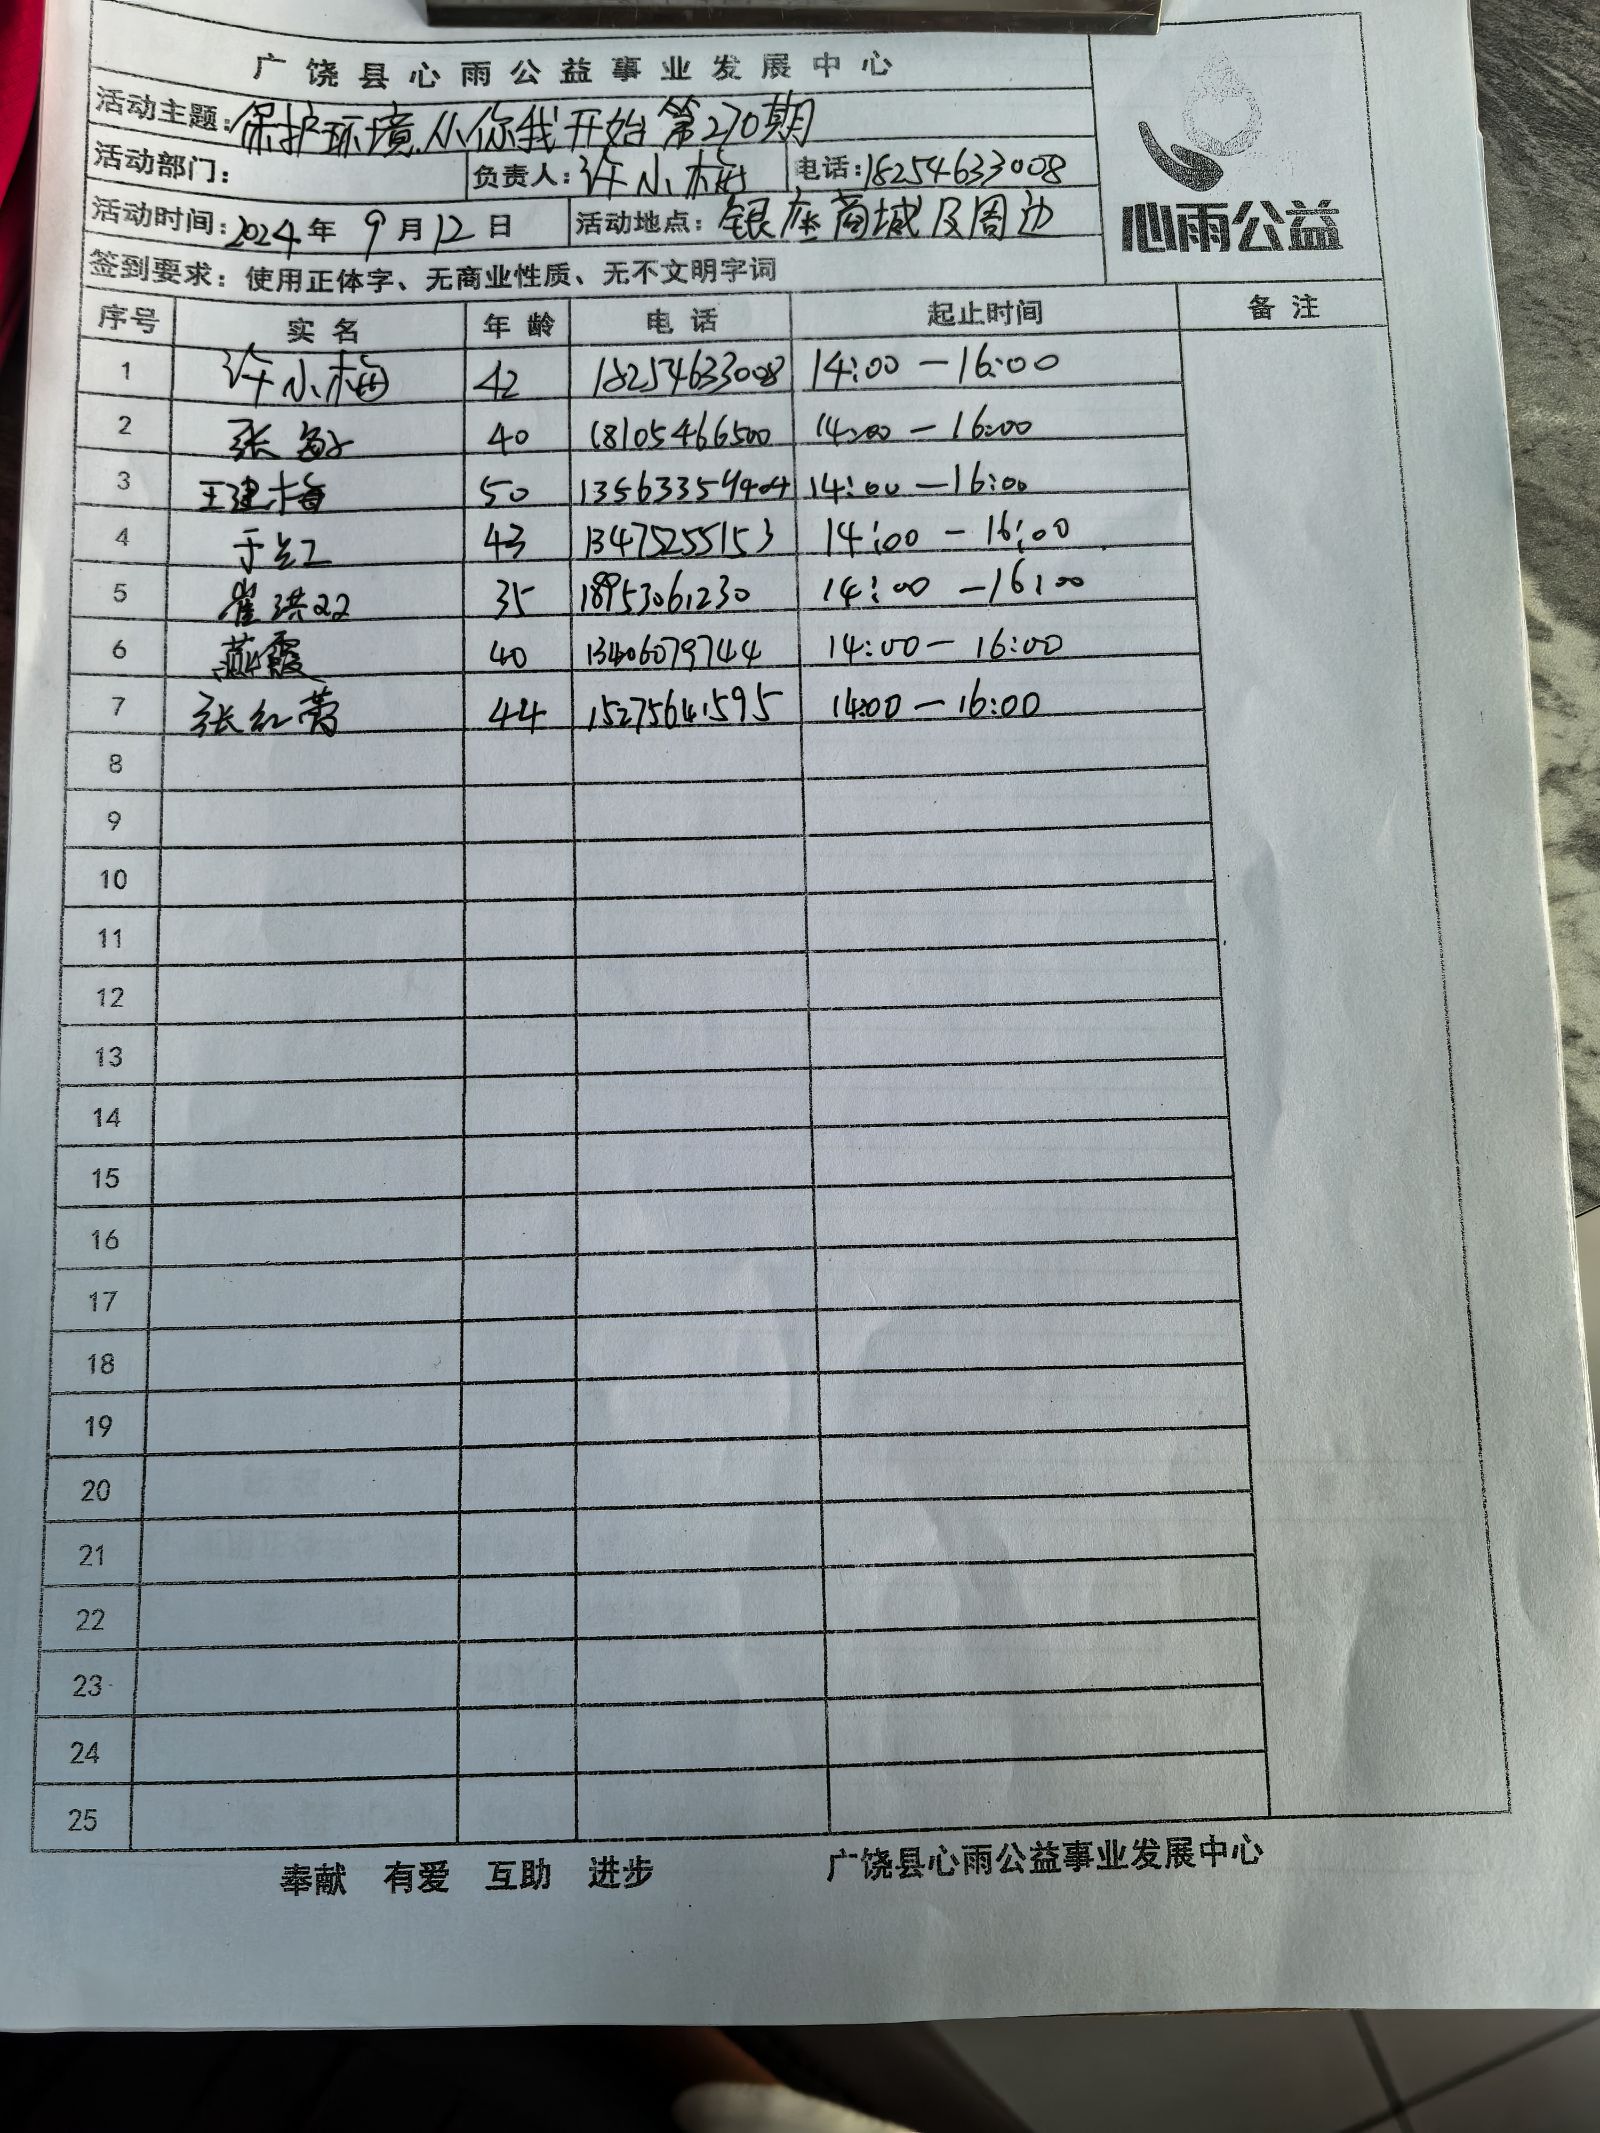 广饶县心雨公益事业发展中心
活动主题:保护环境.从你我开始 第270期
活动部门: 负责人:许小梅 电话:18254633008
活动时间:2024年9月12日 活动地点:银座商城及周边
心雨公益
签到要求:使用正体字、无商业性质、无不文明字词
序号 实名 年龄 电话 起止时间 备注
1 许小梅 42 18254633008 14:00-16:00
2 张敏 40 18105466500 14:00-16:00
3 王建梅 50 14:00-16:00
4 于兰江 43 13475255153 14:00-16:00
5 崔洪 35 18953061230 14:00-16:00
6 燕霞 40 13406079744 14:00-16:00
7 张红蕾 44 15275641595 14:00-16:00
8
9
10
11
12
13
14
15
16
17
18
19
20
21
22
23
24
25
奉献 有爱 互助 进步 广饶县心雨公益事业发展中心